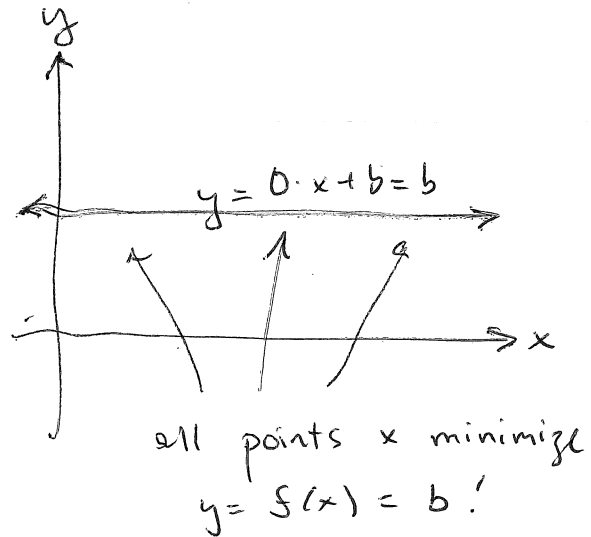 y
y = 0·x+b=b
x
all points x minimize
y = f(x) = b!